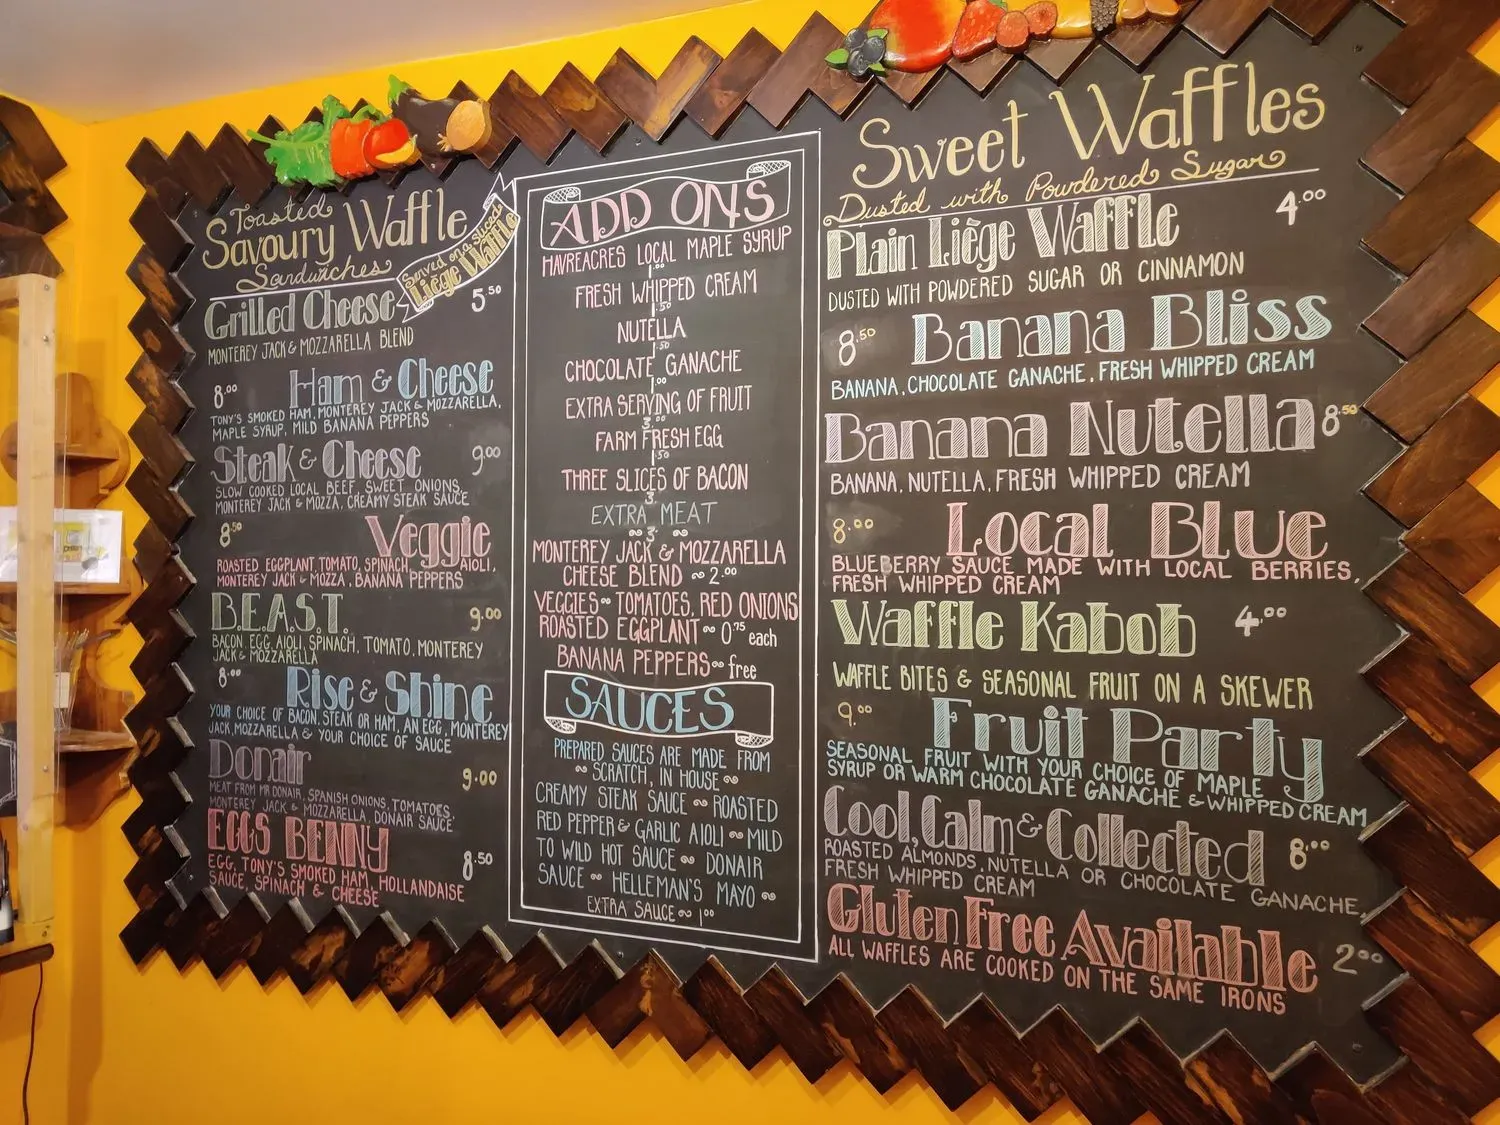 Toasted
Savoury Waffle
Sandwiches
Served on a sliced
Liège Waffle
Grilled Cheese 5.50
MONTEREY JACK & MOZZARELLA BLEND
8.00 Ham & Cheese
TONY'S SMOKED HAM, MONTEREY JACK & MOZZARELLA,
MAPLE SYRUP, MILD BANANA PEPPERS
Steak & Cheese 9.00
SLOW COOKED LOCAL BEEF, SWEET ONIONS,
MONTEREY JACK & MOZZA, CREAMY STEAK SAUCE
8.50 Veggie
ROASTED EGGPLANT, TOMATO, SPINACH, AIOLI,
MONTEREY JACK & MOZZA, BANANA PEPPERS
B.E.A.S.T. 9.00
BACON, EGG, AIOLI, SPINACH, TOMATO, MONTEREY
JACK & MOZZARELLA
8.00 Rise & Shine
YOUR CHOICE OF BACON, STEAK OR HAM, AN EGG, MONTEREY
JACK, MOZZARELLA & YOUR CHOICE OF SAUCE
Donair 9.00
MEAT FROM MR DONAIR, SPANISH ONIONS, TOMATOES,
MONTEREY JACK & MOZZARELLA, DONAIR SAUCE
EGGS BENNY 8.50
EGG, TONY'S SMOKED HAM, HOLLANDAISE
SAUCE, SPINACH & CHEESE
ADD ONS
HAVREACRES LOCAL MAPLE SYRUP
1.00
FRESH WHIPPED CREAM
1.50
NUTELLA
1.50
CHOCOLATE GANACHE
1.00
EXTRA SERVING OF FRUIT
3.00
FARM FRESH EGG
1.50
THREE SLICES OF BACON
3.
EXTRA MEAT
~ 3. ~
MONTEREY JACK & MOZZARELLA
CHEESE BLEND ~ 2.00
VEGGIES ~ TOMATOES, RED ONIONS
ROASTED EGGPLANT ~ 0.75 each
BANANA PEPPERS ~ free
SAUCES
PREPARED SAUCES ARE MADE FROM
~ SCRATCH, IN HOUSE ~
CREAMY STEAK SAUCE ~ ROASTED
RED PEPPER & GARLIC AIOLI ~ MILD
TO WILD HOT SAUCE ~ DONAIR
SAUCE ~ HELLEMAN'S MAYO ~
EXTRA SAUCE ~ 1.00
Sweet Waffles
Dusted with Powdered Sugar
Plain Liège Waffle 4.00
DUSTED WITH POWDERED SUGAR OR CINNAMON
8.50 Banana Bliss
BANANA, CHOCOLATE GANACHE, FRESH WHIPPED CREAM
Banana Nutella 8.50
BANANA, NUTELLA, FRESH WHIPPED CREAM
8.00 Local Blue
BLUEBERRY SAUCE MADE WITH LOCAL BERRIES,
FRESH WHIPPED CREAM
Waffle Kabob 4.00
WAFFLE BITES & SEASONAL FRUIT ON A SKEWER
9.00 Fruit Party
SEASONAL FRUIT WITH YOUR CHOICE OF MAPLE
SYRUP OR WARM CHOCOLATE GANACHE & WHIPPED CREAM
Cool, Calm & Collected 8.00
ROASTED ALMONDS, NUTELLA OR CHOCOLATE GANACHE,
FRESH WHIPPED CREAM
Gluten Free Available 2.00
ALL WAFFLES ARE COOKED ON THE SAME IRONS